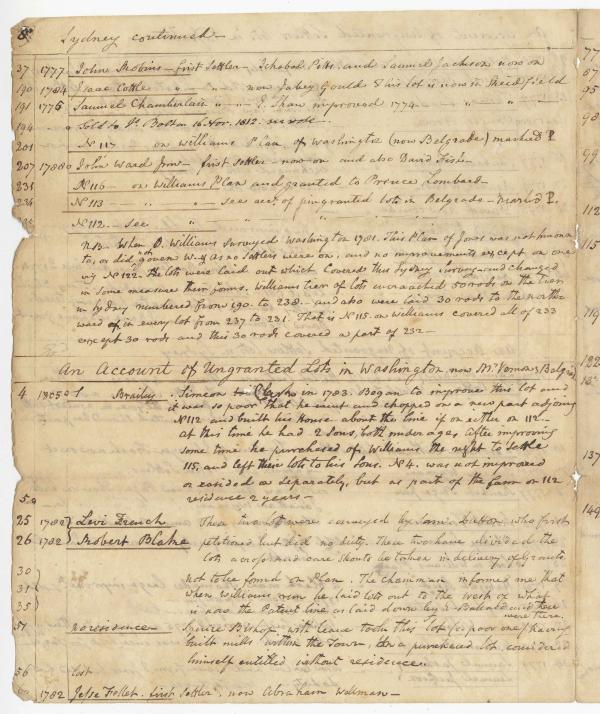 8
Sydney continued —
37 1777 John Robins — first settler — Ichabod Pitts and Samuel Jackson now on
190 1784 Isaac Cottle " " now Jabez Gould & his lot is now in
191 1775 Samuel Chamberlain " " J. Shaw improved 1774 " "
194 " Sold to Boston 16 Nov. 1812.
201 No 117 — on Williams Plan of Washington (now Belgrade) marked P.
207 1780 John Ward Junr — first settler — now on and also David
231 No 116 — on Williams Plan and granted to Prence Lombard —
234 No 113 — " " " — see acct. of ungranted lots in Belgrade — marked P.
No 112 — see " " " "
N.B. When O. Williams surveyed Washington 1781. This Plan of Jones was not known
to, or did not govern W— as no settlers were on, and no improvements except on one
viz No 122. the lots were laid out which covered this Sydney survey and changed
in some measure their forms. Williams tier of lots encroached 50 rods on the tier
in Sydney numbered from 190. to 238 — and also were laid 30 rods to the north-
ward of, in every lot from 237 to 231. That is No 115. on Williams covered all of 233
except 30 rods and this 30 rods covered a part of 232 —
An Account of Ungranted Lots in Washington, now Mt Vernon & Belgrade
4 1805 Simeon Clark in 1783. Began to improve this lot and
it was so poor that he went and chopped on a new part adjoing
No 112 and built his House about the line if on either on 112 —
at this time he had 2 Sons, both under age. After improving
some time he purchased of Williams the right to settle
115, and left these lots to his sons. No 4. was not improved
or resided on separately, but as part of the farm on 112
residence 2 years —
25 1782 Levi French These two lots were surveyed by Saml. Dutton, who first
26 1782 Robert Blake petitioned but did no duty. These two have divided the
lots across and care should be taken in delivery of Grants
30 not to be found on Plan. The chainman informed one that
31 when Williams run he laid lots out to the west of what
35 is now the Patent line as laid down by E. Ballard and these
were there.
51 no residence — Squire Bishop, with leave took this lot (a poor one) having
built mills within the Town, & on a purchased lot considered
himself entitled without residence.
56 lost
1782 Jesse Follet. first settler. now Abraham Wellman —
77
87
95
98
99
112
115
119
122
137
149